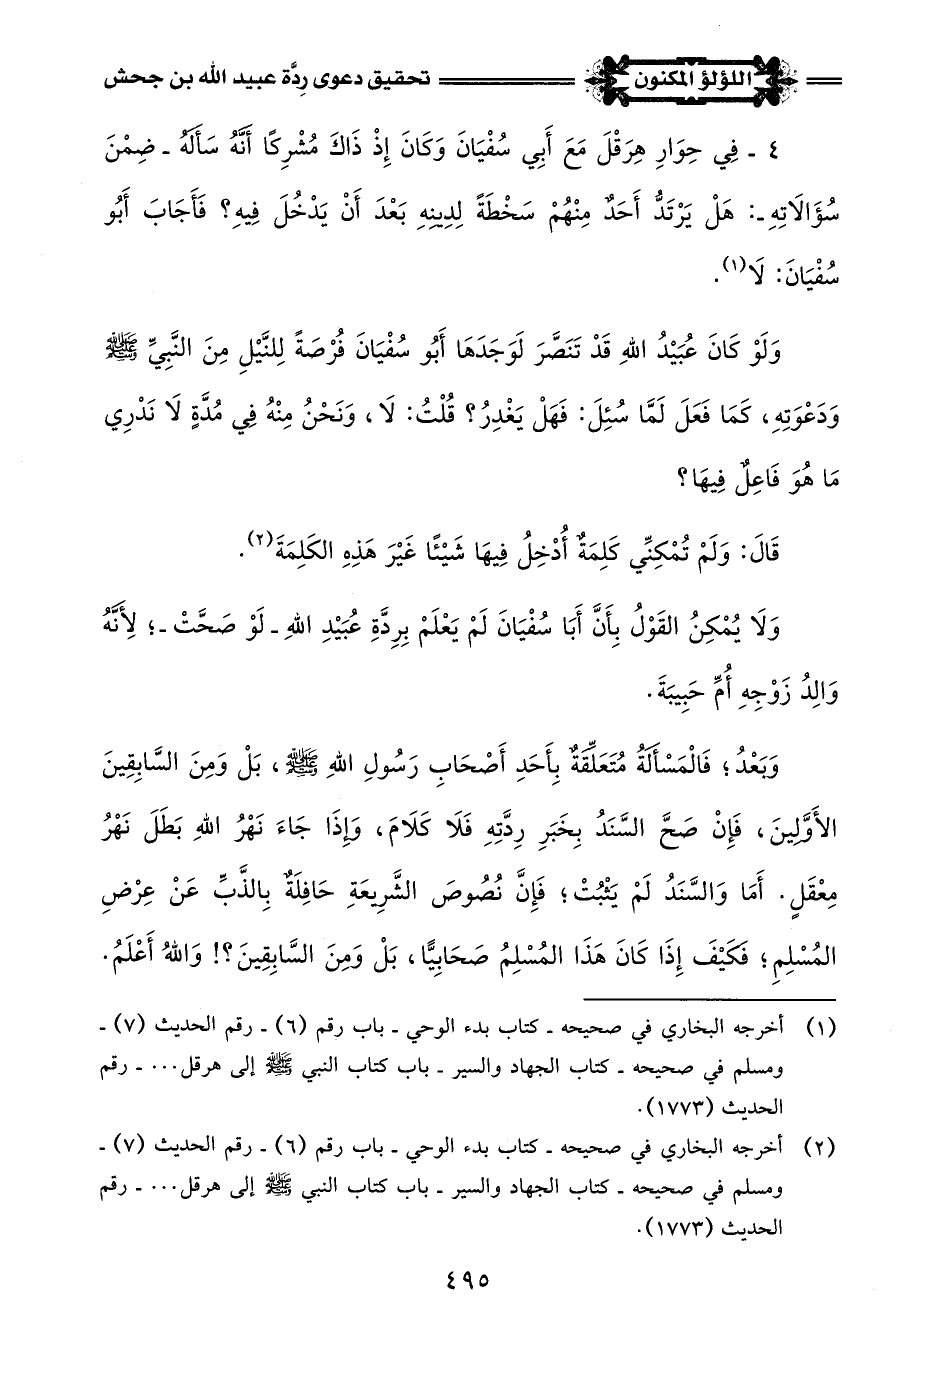 اللؤلؤ المكنون تحقيق دعوى رِدَّة عبيد الله بن جحش
٤ ـ فِي حِوَارِ هِرَقْلَ مَعَ أَبِي سُفْيَانَ وَكَانَ إِذْ ذَاكَ مُشْرِكًا أَنَّهُ سَأَلَهُ ـ ضِمْنَ
سُؤَالَاتِهِ ـ: هَلْ يَرْتَدُّ أَحَدٌ مِنْهُمْ سَخْطَةً لِدِينِهِ بَعْدَ أَنْ يَدْخُلَ فِيهِ؟ فَأَجَابَ أَبُو
سُفْيَانَ: لَا(١).
وَلَوْ كَانَ عُبَيْدُ اللهِ قَدْ تَنَصَّرَ لَوَجَدَهَا أَبُو سُفْيَانَ فُرْصَةً لِلنَّيْلِ مِنَ النَّبِيِّ ﷺ
وَدَعْوَتِهِ، كَمَا فَعَلَ لَمَّا سُئِلَ: فَهَلْ يَغْدِرُ؟ قُلْتُ: لَا، وَنَحْنُ مِنْهُ فِي مُدَّةٍ لَا نَدْرِي
مَا هُوَ فَاعِلٌ فِيهَا؟
قَالَ: وَلَمْ تُمْكِنِّي كَلِمَةٌ أُدْخِلُ فِيهَا شَيْئًا غَيْرَ هَذِهِ الكَلِمَةَ(٢).
وَلَا يُمْكِنُ القَوْلُ بِأَنَّ أَبَا سُفْيَانَ لَمْ يَعْلَمْ بِرِدَّةِ عُبَيْدِ اللهِ ـ لَوْ صَحَّتْ ـ؛ لِأَنَّهُ
وَالِدُ زَوْجِهِ أُمِّ حَبِيبَةَ.
وَبَعْدُ؛ فَالْمَسْأَلَةُ مُتَعَلِّقَةٌ بِأَحَدِ أَصْحَابِ رَسُولِ اللهِ ﷺ، بَلْ وَمِنَ السَّابِقِينَ
الأَوَّلِينَ، فَإِنْ صَحَّ السَّنَدُ بِخَبَرِ رِدَّتِهِ فَلَا كَلَامَ، وَإِذَا جَاءَ نَهْرُ اللهِ بَطَلَ نَهْرُ
مِعْقَلٍ. أَمَا وَالسَّنَدُ لَمْ يَثْبُتْ؛ فَإِنَّ نُصُوصَ الشَّرِيعَةِ حَافِلَةٌ بِالذَّبِّ عَنْ عِرْضِ
المُسْلِمِ؛ فَكَيْفَ إِذَا كَانَ هَذَا المُسْلِمُ صَحَابِيًّا، بَلْ وَمِنَ السَّابِقِينَ؟! وَاللهُ أَعْلَمُ.
(١) أخرجه البخاري في صحيحه ـ كتاب بدء الوحي ـ باب رقم (٦) ـ رقم الحديث (٧) ـ
ومسلم في صحيحه ـ كتاب الجهاد والسير ـ باب كتاب النبي ﷺ إلى هرقل... ـ رقم
الحديث (١٧٧٣).
(٢) أخرجه البخاري في صحيحه ـ كتاب بدء الوحي ـ باب رقم (٦) ـ رقم الحديث (٧) ـ
ومسلم في صحيحه ـ كتاب الجهاد والسير ـ باب كتاب النبي ﷺ إلى هرقل... ـ رقم
الحديث (١٧٧٣).
٤٩٥